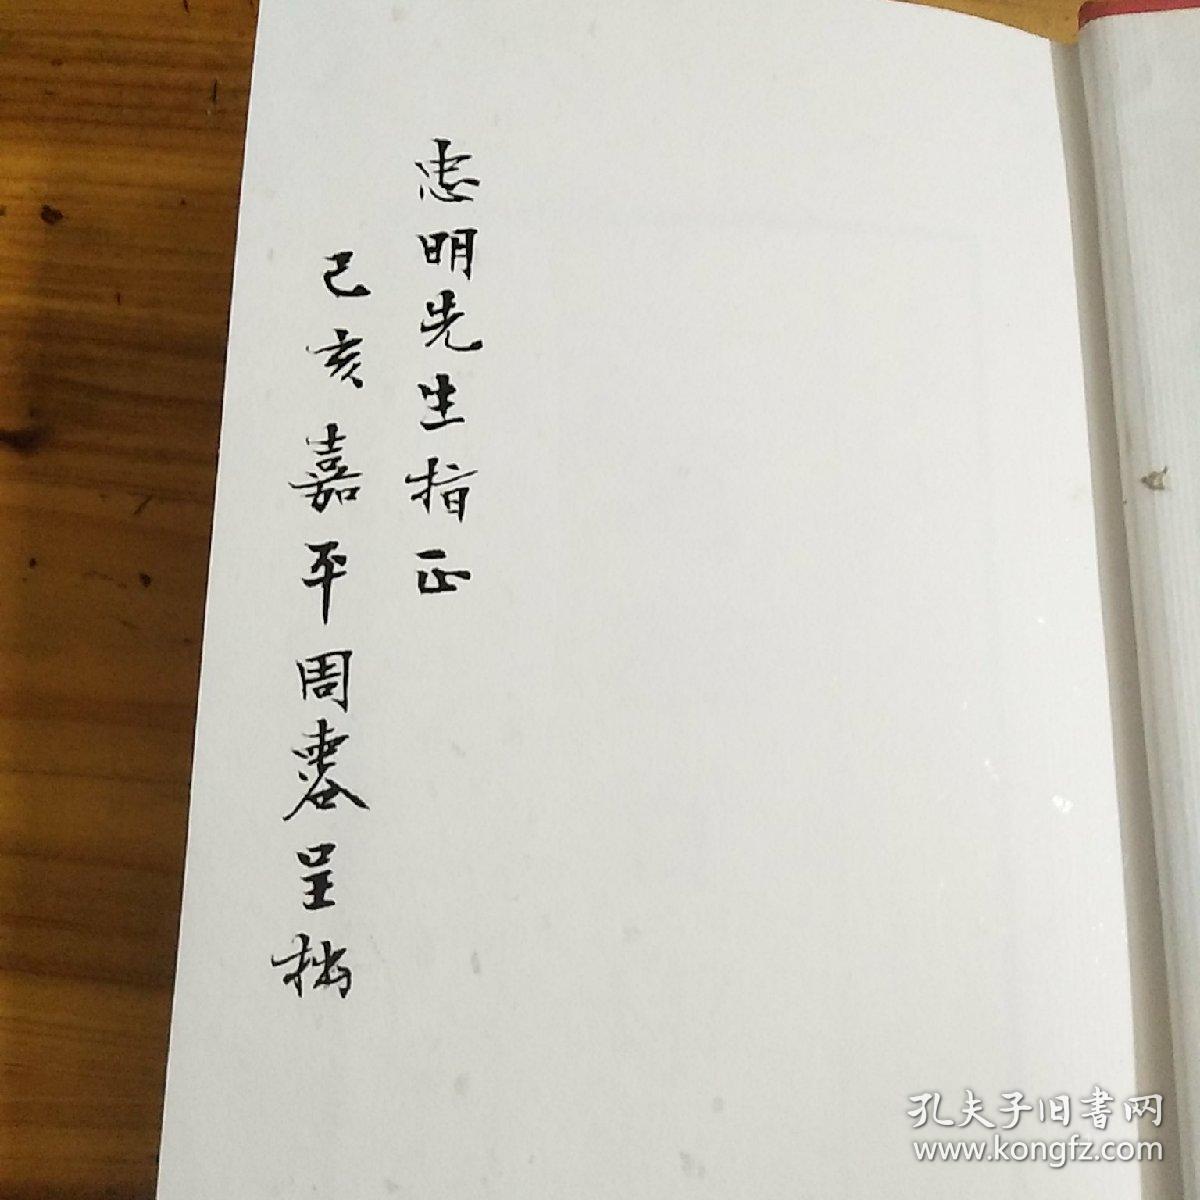 忠明先生指正
己亥嘉平周呈拙
孔夫子旧書网
www.kongfz.com